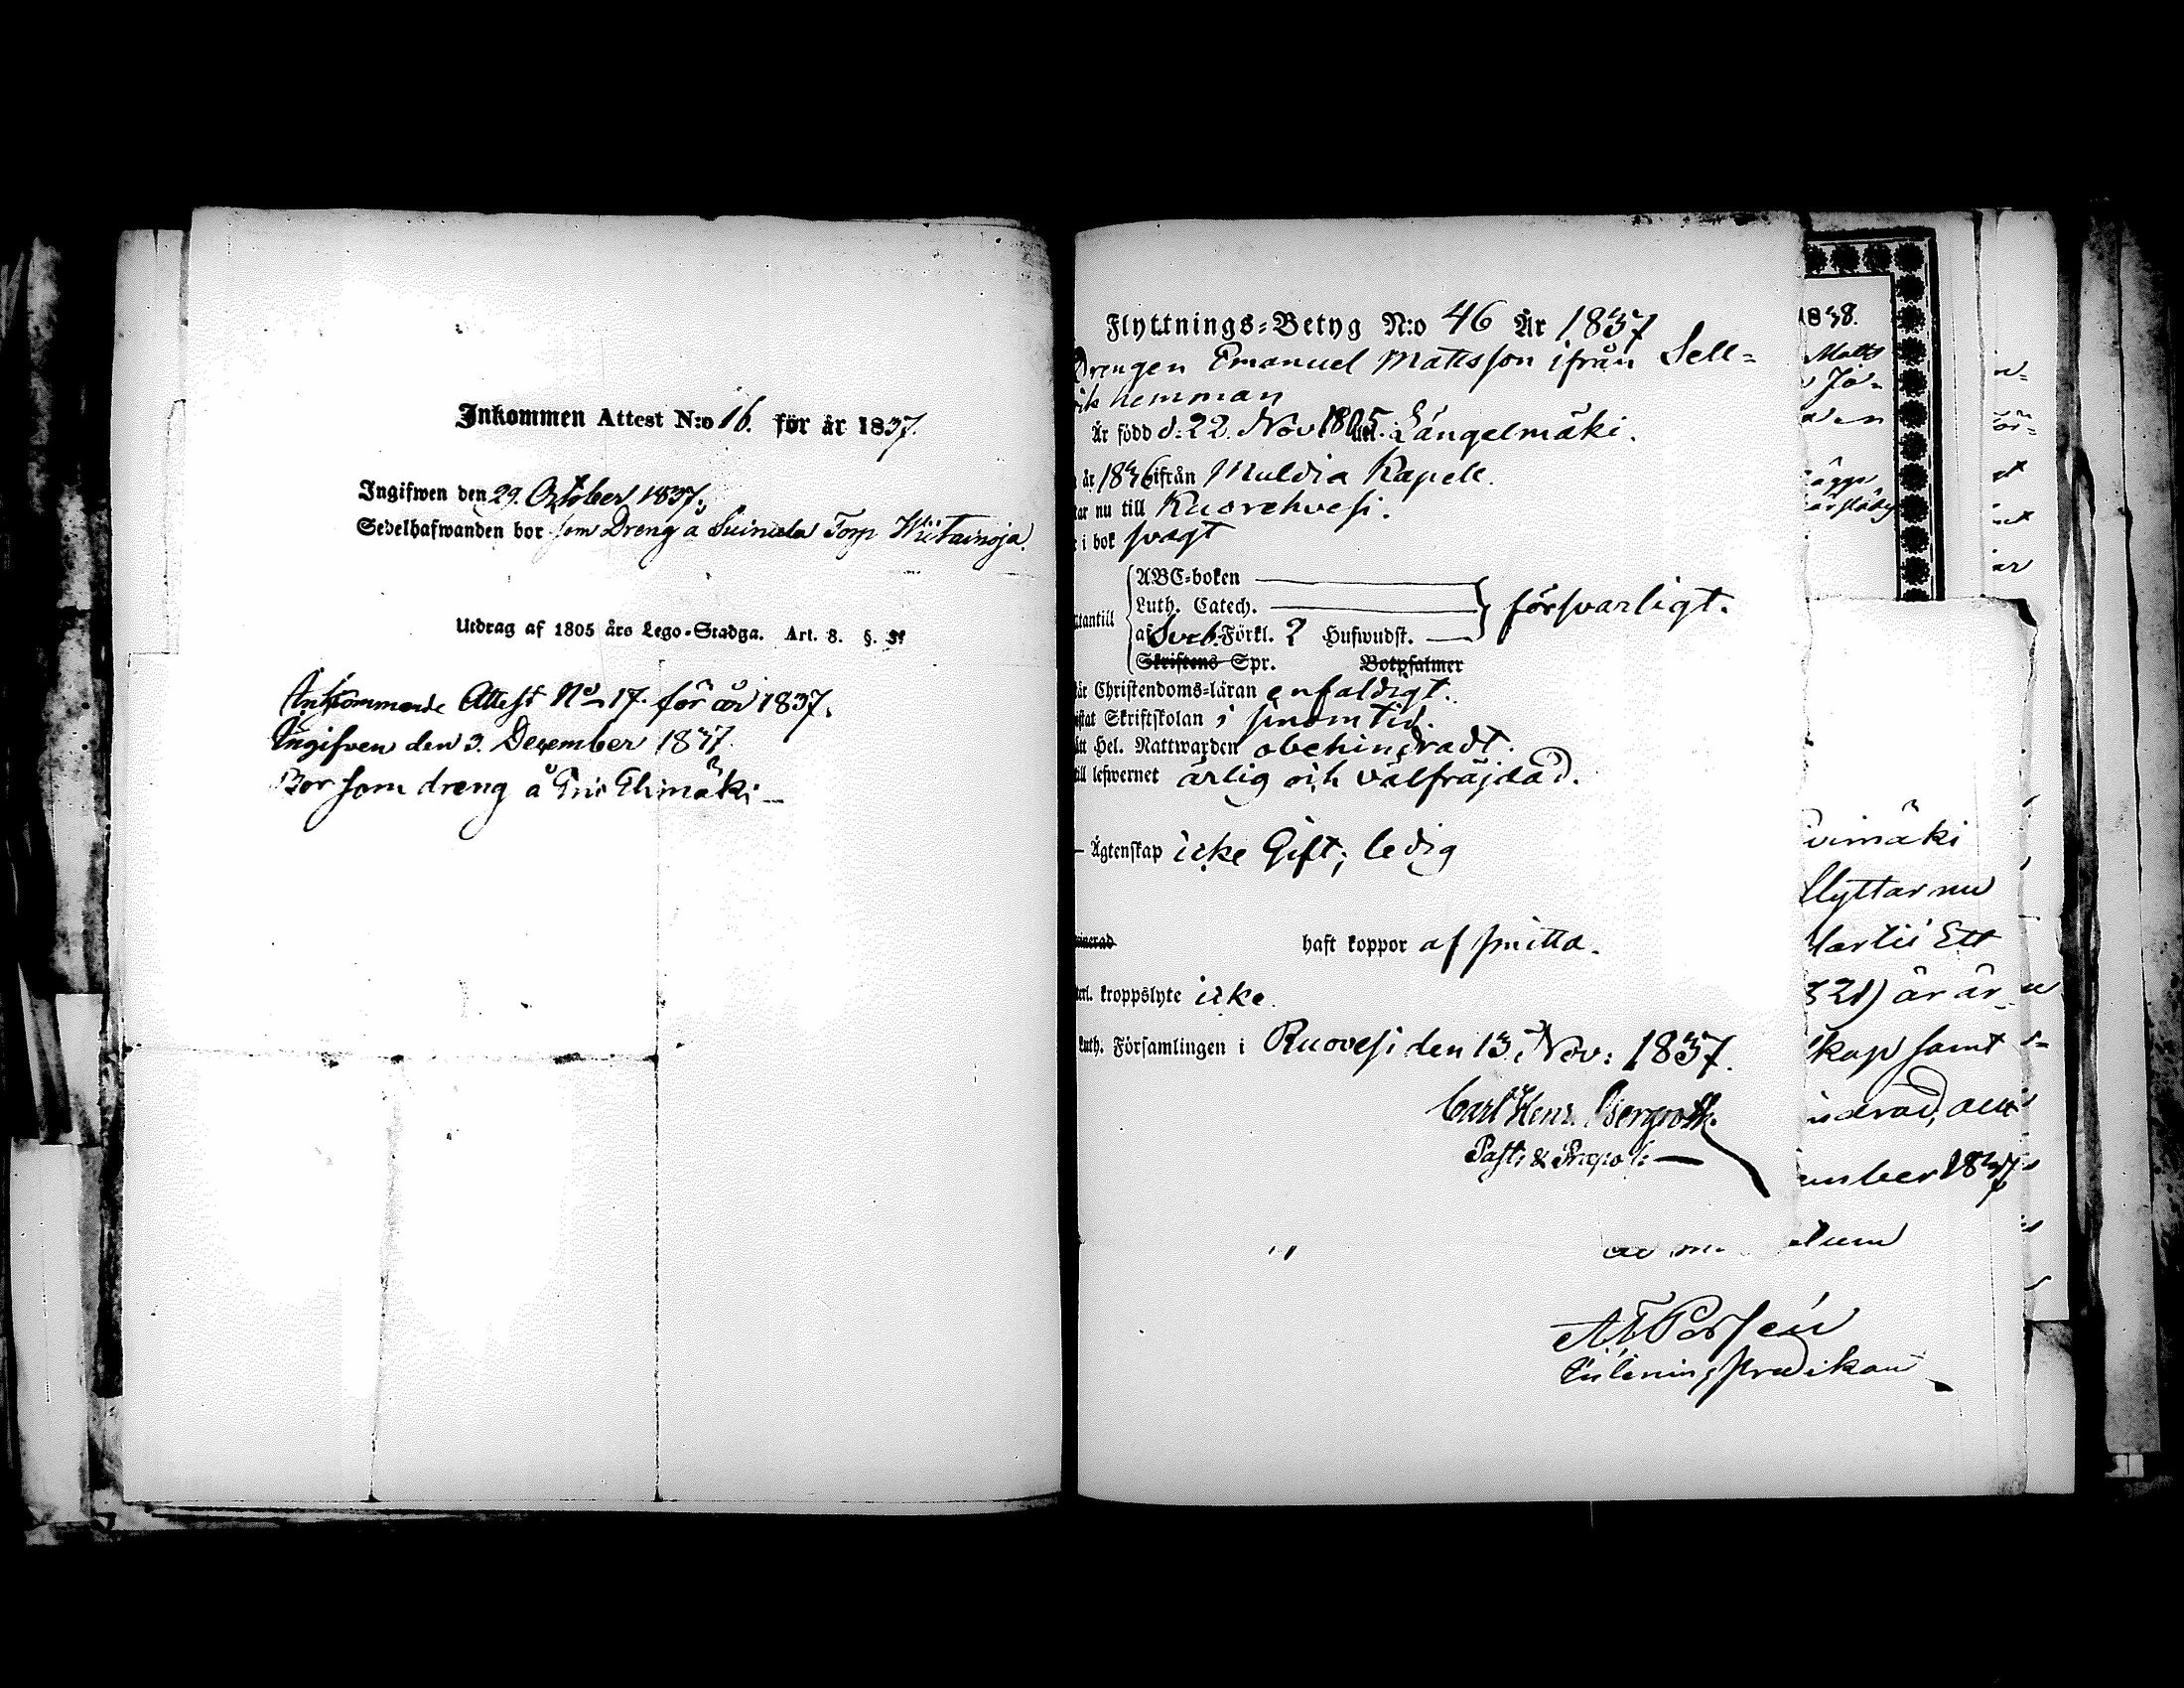 Inkommen Attest N:o 16. för år 1837.
Ingifwen den 29. October 1837.
Sedelhafwanden bor som Dreng å Suinula Torp Wiitainoja.
Utdrag af 1805 års Lego-Stadga. Art. 8. §.
Ankommende Attest No 17. för år 1837.
Ingifven den 3. December 1837.
Bor som dreng å
Flyttnings-Betyg N:o 46 År 1837
Drengen Emanuel Mattsson ifrån Sell=
hemman
Är född d. 22. Nov 1805. i Längelmäki.
år 1836 ifrån Muldia Kapell.
ar nu till Kuorehvesi.
i bok svagt
ABC-boken
Luth. Catech.
utantill försvarligt.
af Sveb. Förkl. ? Hufwudst.
Skriftens Spr. Botpsalmer
Christendoms-läran enfaldigt.
Skriftskolan i sinom tid.
Hel. Nattwarden obehindradt.
till lefwernet ärlig och välfräjdad.
Ägtenskap icke Gift; ledig
haft koppor af smitta.
kroppslyte icke.
Luth. Församlingen i Ruovesi den 13. Nov: 1837.
Carl Henr. Bergroth.
Past: & Præpos:
1838.
Matts
Jo-
vimäki
flyttar nu
Ett
321) är är-
skap samt
indrad, att
ember 1837
A F Borsén
predikan